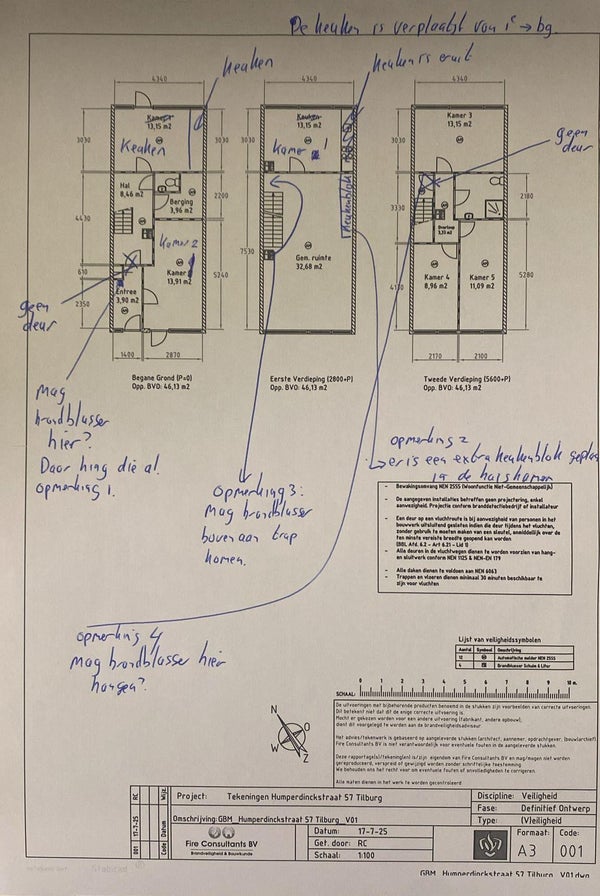 De keuken is verplaatst van 1e → bg.
keuken
keuken is eruit
4340
4340
4340
Kamer
13,15 m2
Keuken
Keuken
13,15 m2
Kamer 1
Kamer 3
13,15 m2
geen
deur
3030
3030
3030
3030
Hal
8,46 m2
Berging
3,96 m2
2200
4430
Kamer 2
Kamer
13,91 m2
5240
610
2350
Entree
3,90 m2
1400
2870
keukenblok
7530
Gem. ruimte
32,68 m2
3330
2180
Overloop
Kamer 4
8,96 m2
Kamer 5
11,09 m2
5280
2170
2100
geen
deur
Begane Grond (P=0)
Opp. BVO: 46,13 m2
Eerste Verdieping (2800+P)
Opp. BVO: 46,13 m2
Tweede Verdieping (5600+P)
Opp. BVO: 46,13 m2
Mag
brandblusser
hier?
Daar hing die al.
opmerking 1.
opmerking 2
er is een extra keukenblok geplaa
in de huiskamer
Opmerking 3:
Mag brandblusser
bovenaan trap
komen.
opmerking 4
Mag brandblusser hier
hangen?
- Bewakingsomvang NEN 2555 (Woonfunctie Niet-Gemeenschappelijk)
- De aangegeven installaties betreffen geen projectering, enkel
aanwezigheid. Projectie conform branddetectiebedrijf of installateur
- Een deur op een vluchtroute is bij aanwezigheid van personen in het
bouwwerk uitsluitend gesloten indien die deur tijdens het vluchten,
zonder gebruik te moeten maken van een sleutel, onmiddellijk over de
ten minste vereiste breedte geopend kan worden
(BBL Afd. 6.2 - Art 6.21 - Lid 1)
- Alle deuren in de vluchtwegen dienen te worden voorzien van hang-
en sluitwerk conform NEN 1125 & NEN-EN 179
- Alle daken dienen te voldoen aan NEN 6063
- Trappen en vloeren dienen minimaal 30 minuten beschikbaar te
zijn voor vluchten
Lijst van veiligheidssymbolen
Aantal Symbool Omschrijving
12 Automatische melder NEN 2555
4 Brandblusser Schuim 6 Liter
SCHAAL:
0 1 2 3 4 5 6 7 8 9 10 m.
De uitvoeringen met bijbehorende producten benoemd in de stukken zijn voorbeelden van correcte uitvoeringen.
Dit betekent niet dat dit de enige correcte uitvoering is.
Mocht er gekozen worden voor een andere uitvoering (fabrikant, andere opbouw),
dient dit voorgelegd te worden aan de brandveiligheidsadviseur.
Het advies/tekenwerk is gebaseerd op aangeleverde stukken (architect, aannemer, opdrachtgever, (bouw)archief).
Fire Consultants BV is niet verantwoordelijk voor eventuele fouten in de aangeleverde stukken.
Deze rapportage(s)/tekening(en) is/zijn eigendom van Fire Consultants BV en mag/mogen niet worden
gereproduceerd, verspreid of gewijzigd worden zonder schriftelijke toestemming.
We behouden ons het recht voor om eventuele fouten of onvolledigheden te corrigeren.
Alle maten dienen in het werk te worden gecontroleerd.
N
O
W
Z
001 17-7-25 RC
Code Datum Wijz.
Project: Tekeningen Humperdinckstraat 57 Tilburg
Omschrijving: GBM_Humperdinckstraat 57 Tilburg_V01
Fire Consultants BV
Brandveiligheid & Bouwkunde
Datum: 17-7-25
Get. door: RC
Schaal: 1:100
Discipline: Veiligheid
Fase: Definitief Ontwerp
Type: (V)eiligheid
Formaat: A3
Code: 001
GBM_Humperdinckstraat 57 Tilburg_V01.dwg